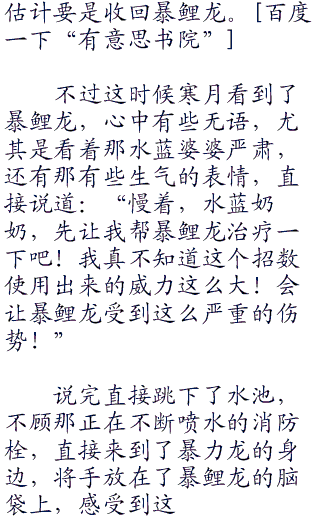 估计要是收回暴鲤龙。[百度
一下“有意思书院”]
不过这时候寒月看到了
暴鲤龙，心中有些无语，尤
其是看着那水蓝婆婆严肃，
还有那有些生气的表情，直
接说道：“慢着，水蓝奶
奶，先让我帮暴鲤龙治疗一
下吧！我真不知道这个招数
使用出来的威力这么大！会
让暴鲤龙受到这么严重的伤
势！”
说完直接跳下了水池，
不顾那正在不断喷水的消防
栓，直接来到了暴力龙的身
边，将手放在了暴鲤龙的脑
袋上，感受到这